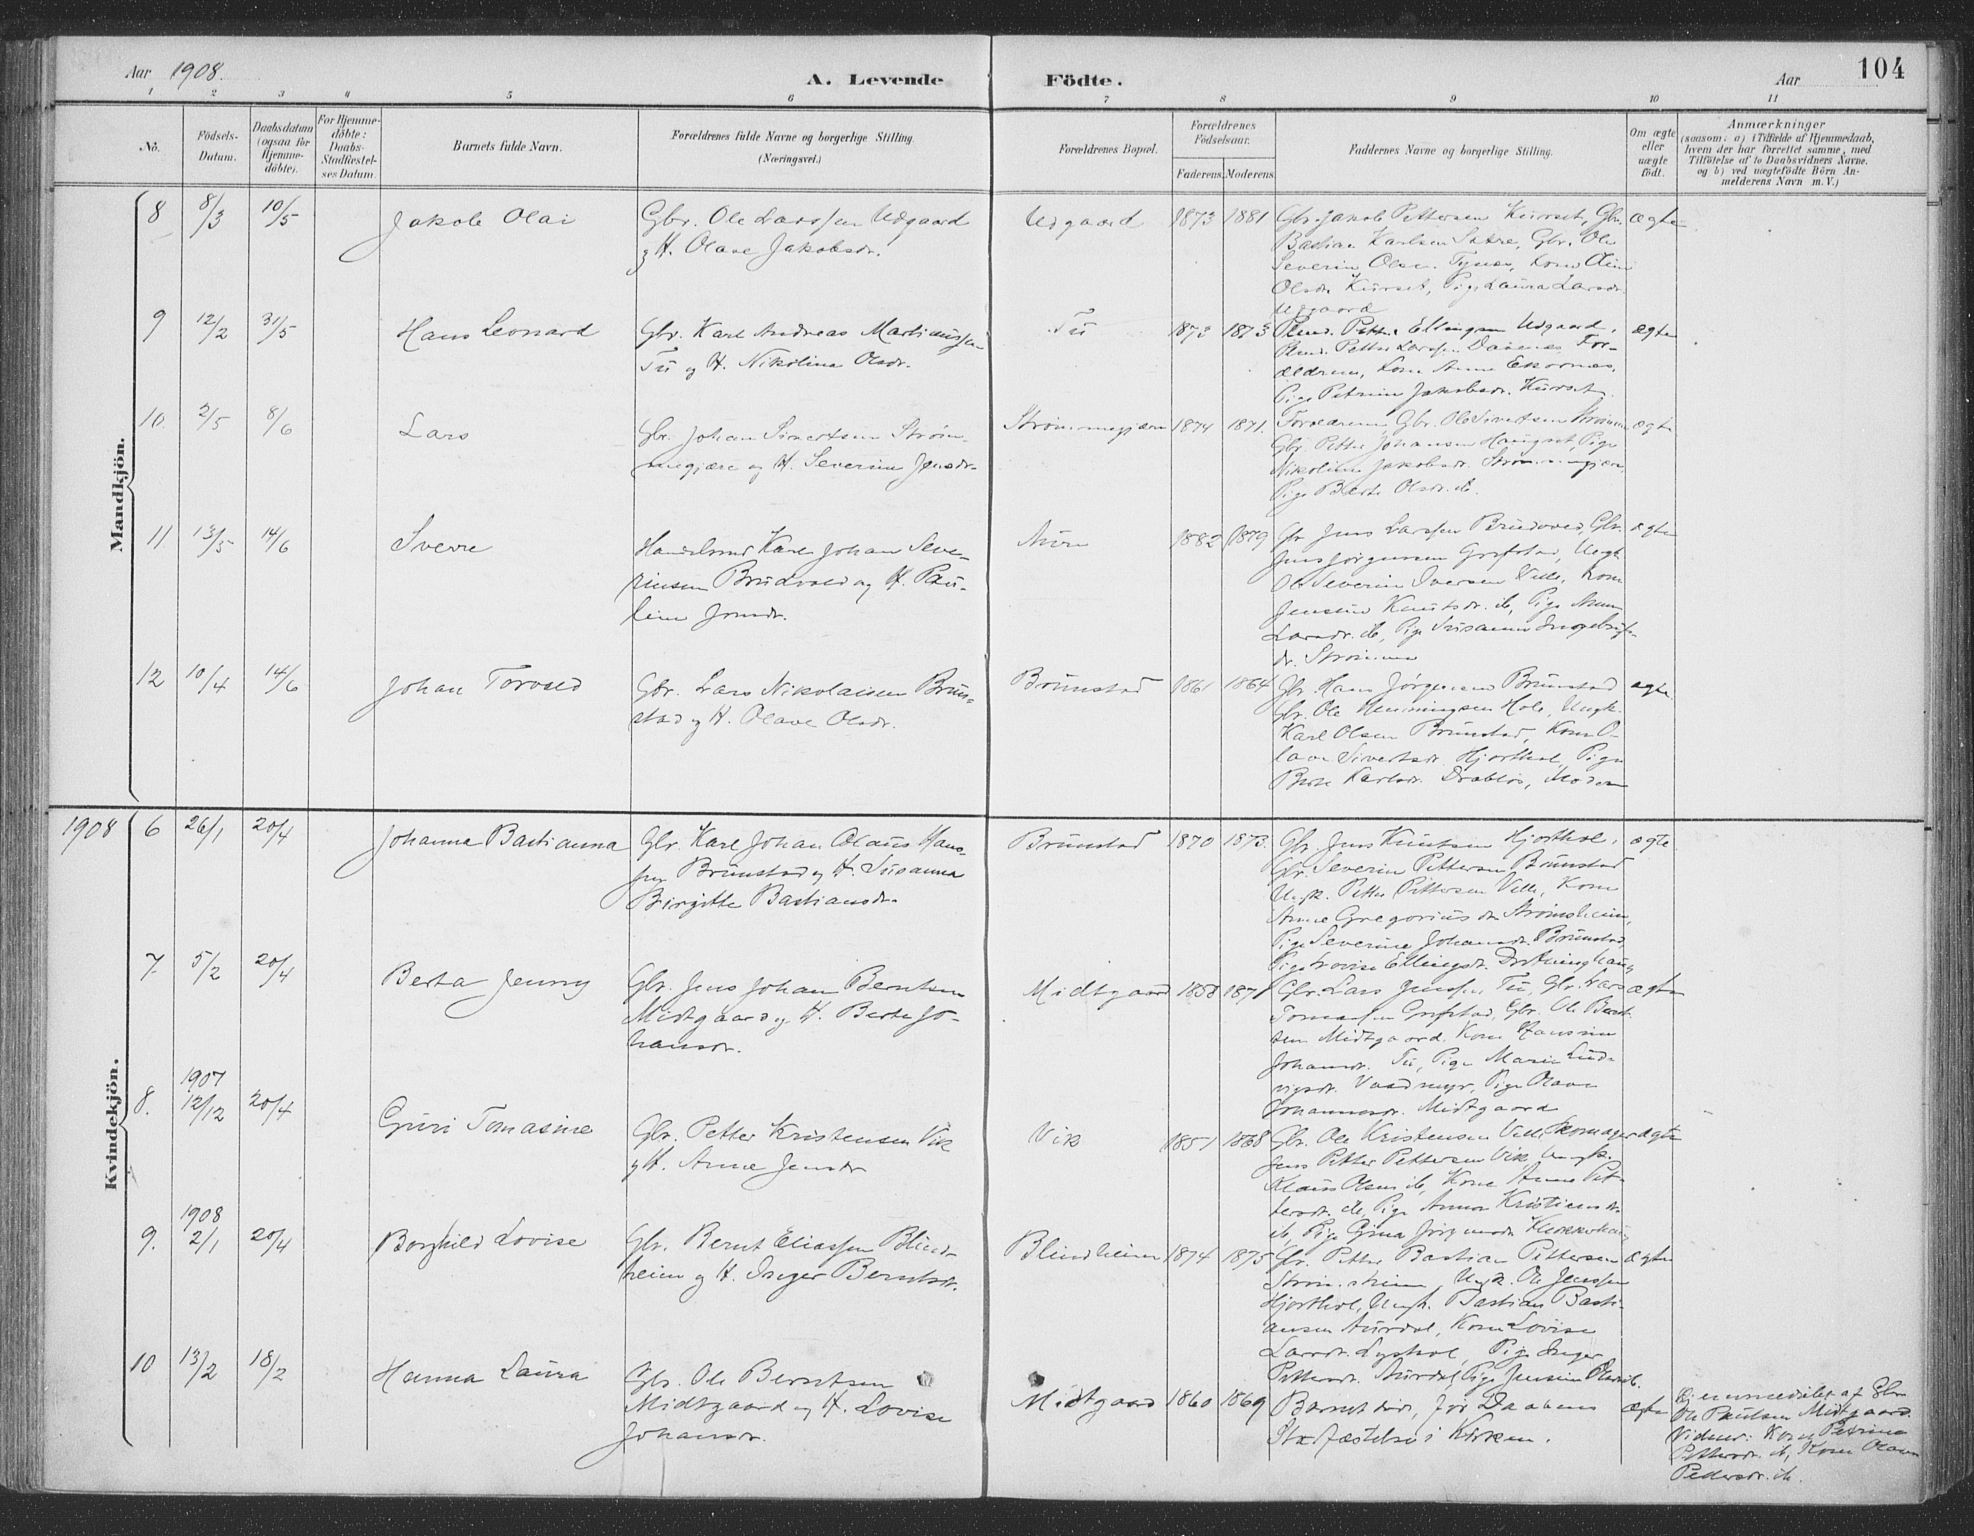 Aar 1908.
A. Levende
Födte.
Aar
104
1 2 3 4 5 6 7 8 9 10 11
No.
Födsels-
Datum.
Daabsdatum
(ogsaa for
Hjemme-
döbte).
For Hjemme-
döbte:
Daabs-
Stadfæstel-
ses Datum.
Barnets fulde Navn.
Forældrenes fulde Navne og borgerlige Stilling.
(Næringsvei.)
Forældrenes Bopæl.
Forældrenes
Födselsaar.
Faderens. Moderens.
Faddernes Navne og borgerlige Stilling.
Om ægte
eller
uægte
født.
Anmærkninger
(saasom: a) i Tilfælde af Hjemmedaab,
hvem der har forrettet samme, med
Tilföielse af to Daabsvidners Navne.
og b) ved uægtefödte Börn An-
melderens Navn m. V.)
Mandkjön.
8 8/3 10/5 Jakob Olai
Gbr. Ole Larssen Udgaard
og H. Olave Jakobsdr.
Udgaard 1873 1881
Gbr. Jakob Pettersen Kurset, Gbr.
Bastian Karlsen Sætre, Gbr. Ole
Severin Olsen Tynes, Kone
Olsdr. Kurset, Pige Laura Larsdr.
Udgaard
ægte
9 12/2 31/5 Hans Leonard
Gbr. Karl Andreas Martinussen
Tu og H. Nikoline Olsdr.
Tu 1873 1873
Petter Ellingsen Udgaard,
Petter Larssen For-
ældrene, Kone Anne Ekornes,
Pige Petrine Jakobsdr. Kurset
ægte
10. 2/5 8/6 Lars
Gbr. Johan Sivertsen Strøm-
megjære og H. Severine Jensdr.
Strømmegjære 1874 1871.
Forældrene, Gbr. Ole Sivertsen
Gbr. Petter Johansen Haugset, Pige
Nikoline Jakobsdr. Strømmegjære,
Pige Berte Olsdr. ib.
ægte
11 13/5 14/6 Sverre
Handelsmd Karl Johan Seve-
rinsen Brudvold og H. Pau-
line Jonsdr.
Aure 1882 1879
Gbr. Jens Larssen Brudevold, Gbr.
Jens Jørgensen Grøfstad, Ungk.
Ole Severin Iversen Velle, Kone
Jensine Knutsdr. ib, Pige Anna
Larsdr. ib, Pige Susanne
dr. Strømmen
ægte
12 10/4 14/6 Johan Torvald
Gbr. Lars Nikolaisen Brun-
stad og H. Olave Olsdr.
Brunstad 1861 1864
Gbr. Hans Jørgensen Brunstad
Gbr. Ole Henningsen Hole, Ungk.
Karl Olsen Brunstad, Kone O-
lave Sivertsdr. Hjorthol, Pige
Berte Karlsdr. Drabløs, Moderen
ægte
Kvindekjön.
1908 6 26/1 20/4 Johanna Bastianna
Gbr. Karl Johan Olaus Hans-
sen Brunstad og H. Susanna
Birgitte Bastiansdr.
Brunstad 1870 1873.
Gbr. Jens Knutsen Hjorthol,
Gbr. Severin Pettersen Brunstad
Ungk. Petter Pettersen Velle, Kone
Anne Gregoriusdr. Strømsheim,
Pige Severine Johansdr. Brunstad,
Pige Lovise Ellingsdr. Drotninghaug
ægte
7. 5/2 20/4 Berta Jenny
Gbr. Jens Johan Berntsen
Midtgaard og H. Berte Jo-
hansdr.
Midtgaard 1858 1871
Gbr. Lars Jenssen Tu, Gbr. Lars
Tomassen Grøfstad, Gbr. Ole Bernt-
sen Midtgaard, Kone Hansine
Johansdr. Tu, Pige Marie Lud-
vigsdr. Vaadmyr, Pige Olave
Johannesdr. Midtgaard
ægte
8. 1907 12/12 20/4 Guri Tomasine
Gbr. Petter Kristensen Vik
og H. Anne Jensdr
Vik 1851 1868
Gbr. Ole Kristensen Velle, Skomager
Jens Petter Pettersen Vik, Ungk.
Klaus Olsen ib, Kone Anne Pet-
tersdr. ib, Pige Anna Kristiansdr.
ib, Pige Gina Jørgensdr.
ægte
9. 1908 2/1 20/4 Borghild Lovise
Gbr. Bernt Eliassen Blind-
heim og H. Inger Berntsdr.
Blindheim 1874 1875
Gbr. Petter Bastian Pettersen
Strømsheim, Ungk. Ole Jenssen
Hjorthol, Ungk. Bastian Basti-
ansen Aurdal, Kone Lovise
Larsdr. Lyshol, Pige Inger
Pettersdr. Aurdal, Pige Jensine Olsdr. ib.
ægte
10 13/2 18/2 Hanna Laura
Gbr. Ole Berntsen
Midtgaard og H. Lovise
Johansdr.
Midtgaard 1860 1869
Barnet døde før Daabens
Stadfæstelse i Kirken.
ægte
Hjemmedøbt af Gbr.
Ole Paulsen Midtgaard.
Vidner: Kone Petrine
Pettersdr. ib, Kone Olave
Pedersdr. ib.